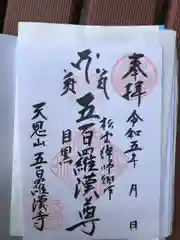 奉拝 令和五年 月 日
松雲禅師
五百羅漢尊
目黒
天恩山 五百羅漢寺